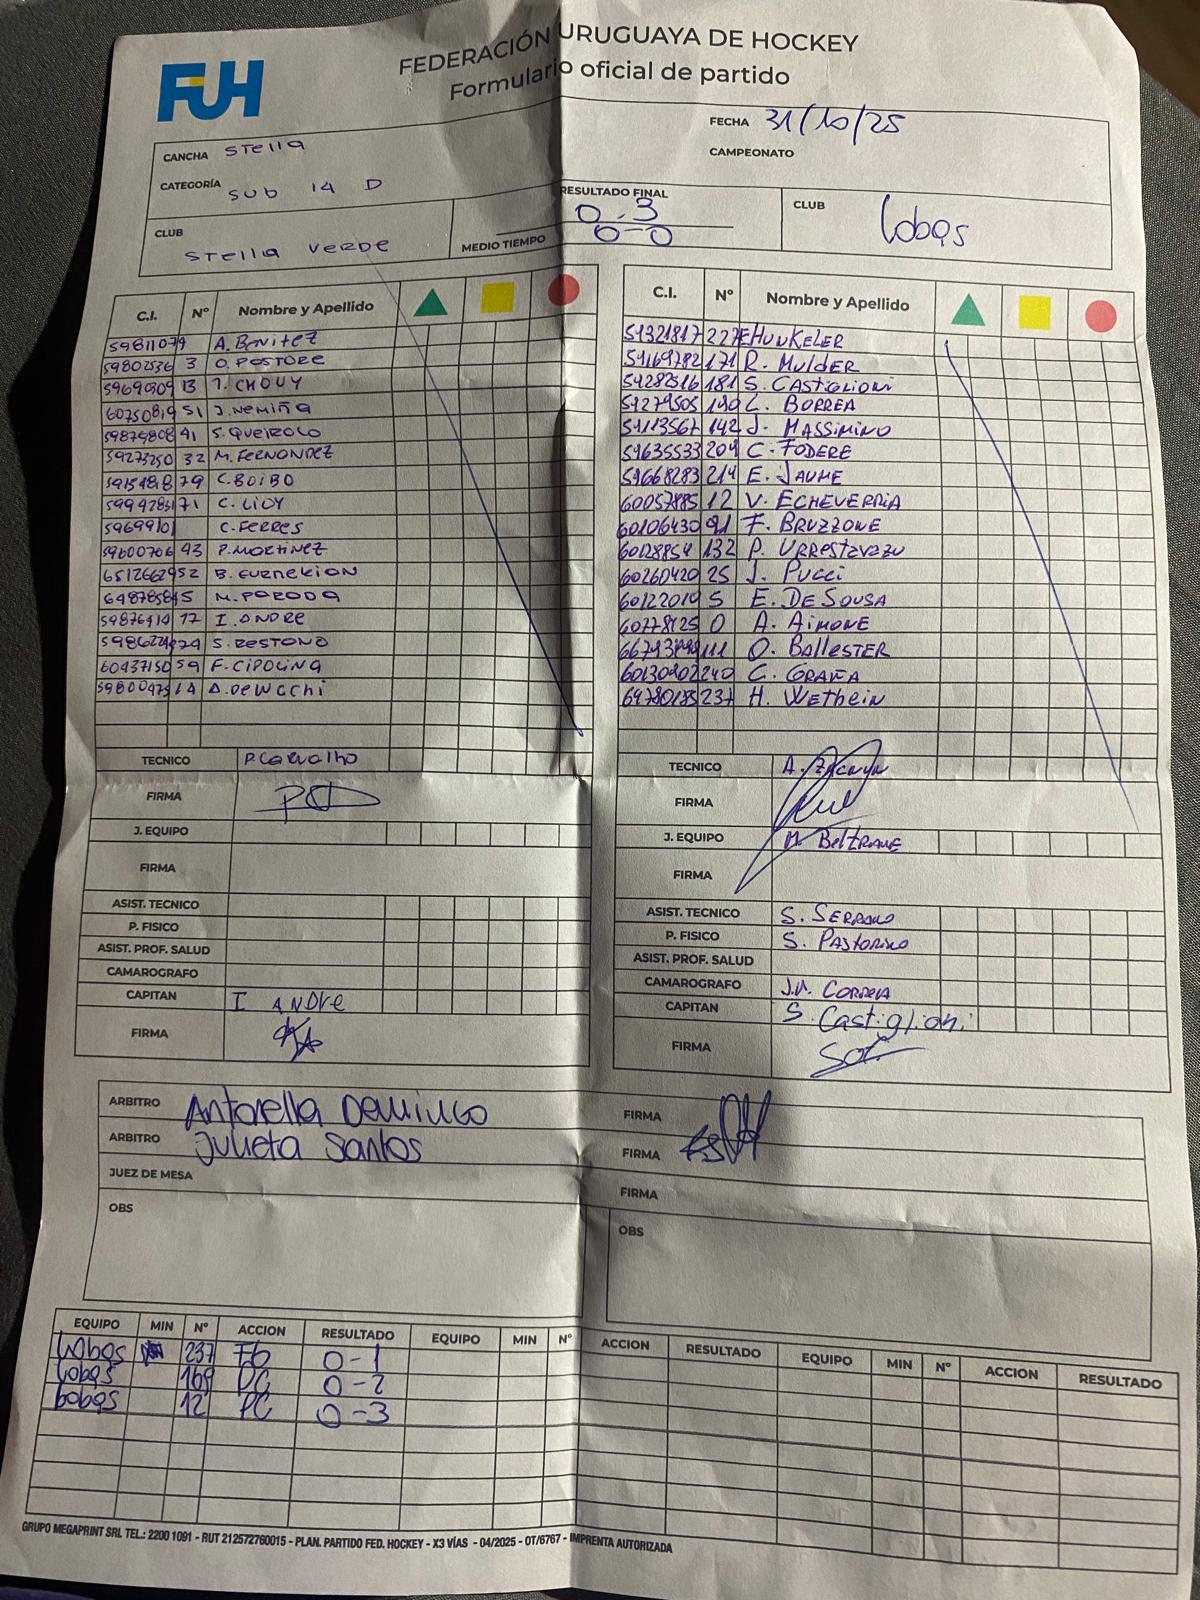 FUH
FEDERACIÓN URUGUAYA DE HOCKEY
Formulario oficial de partido
FECHA 31/10/25
CANCHA Stella
CAMPEONATO
CATEGORÍA SUB 14 D
RESULTADO FINAL 0-3
CLUB Stella Verde
MEDIO TIEMPO 0-0
CLUB Lobas
C.I. Nº Nombre y Apellido
A. Benitez
59802536 3 O. Pastore
13 T. CHOUY
51 J. Nemiña
41 S. Queirolo
59273250 32 M. Fernandez
79 C. Boibo
71 C. Lioy
C. Ferres
59600706 43 P. Martinez
52 B. Eurnekian
M. Paroda
17 I. Andre
S. Restono
59 F. Cipolina
14
TECNICO P. Carvalho
FIRMA
J. EQUIPO
FIRMA
ASIST. TECNICO
P. FISICO
ASIST. PROF. SALUD
CAMAROGRAFO
CAPITAN I ANDre
FIRMA
C.I. Nº Nombre y Apellido
51321817 HUNKELER
171 R. MULDER
181 S. CASTIGLIONI
L. BORREA
142 J. MASSIMINO
59635533 209 C. FODERE
59668283 214 E. JAUME
60057885 12 V. ECHEVERRIA
60106430 91 F. BRUZZONE
60128854 132 P. URRESTARAZU
60260420 25 J. PUCCI
60122019 5 E. DE SOUSA
60778125 0 A. AIMONE
111 O. BALLESTER
60130902 240 C. GRAÑA
237 H. Wethein
TECNICO
FIRMA
J. EQUIPO M. BelTRAME
FIRMA
ASIST. TECNICO S. SERRANO
P. FISICO S. PASTORINO
ASIST. PROF. SALUD
CAMAROGRAFO CORREA
CAPITAN S. Castiglioni
FIRMA
ARBITRO Antonella Domingo
FIRMA
ARBITRO Julieta Santos
FIRMA
JUEZ DE MESA
FIRMA
OBS
OBS
EQUIPO MIN Nº ACCION RESULTADO EQUIPO MIN Nº ACCION RESULTADO EQUIPO MIN Nº ACCION RESULTADO
Lobas 237 FG 0-1
Lobas 169 PC 0-2
Lobas 12 PC 0-3
GRUPO MEGAPRINT SRL TEL.: 2200 1091 - RUT 212572760015 - PLAN. PARTIDO FED. HOCKEY - X3 VÍAS - 04/2025 - OT/6767 - IMPRENTA AUTORIZADA